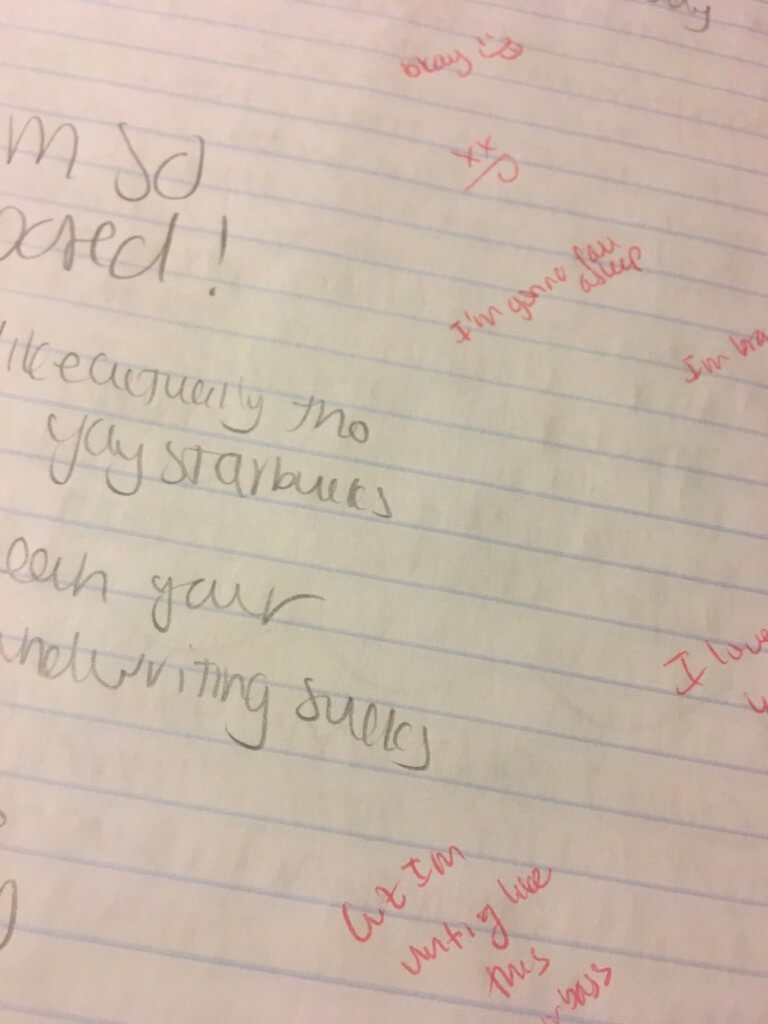 okay
xx
m so
ocred!
I'm gonna fall
asleep
I'm
like actually tho
yay starbucks
your
ndwriting sucks
I love
cuz Im
writig like
this